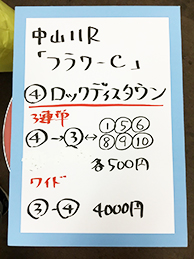 中山11R
「フラワーC」
④ロックディスタウン
3連単
④→③↔①⑤⑥
⑧⑨⑩
各500円
ワイド
③-④ 4000円